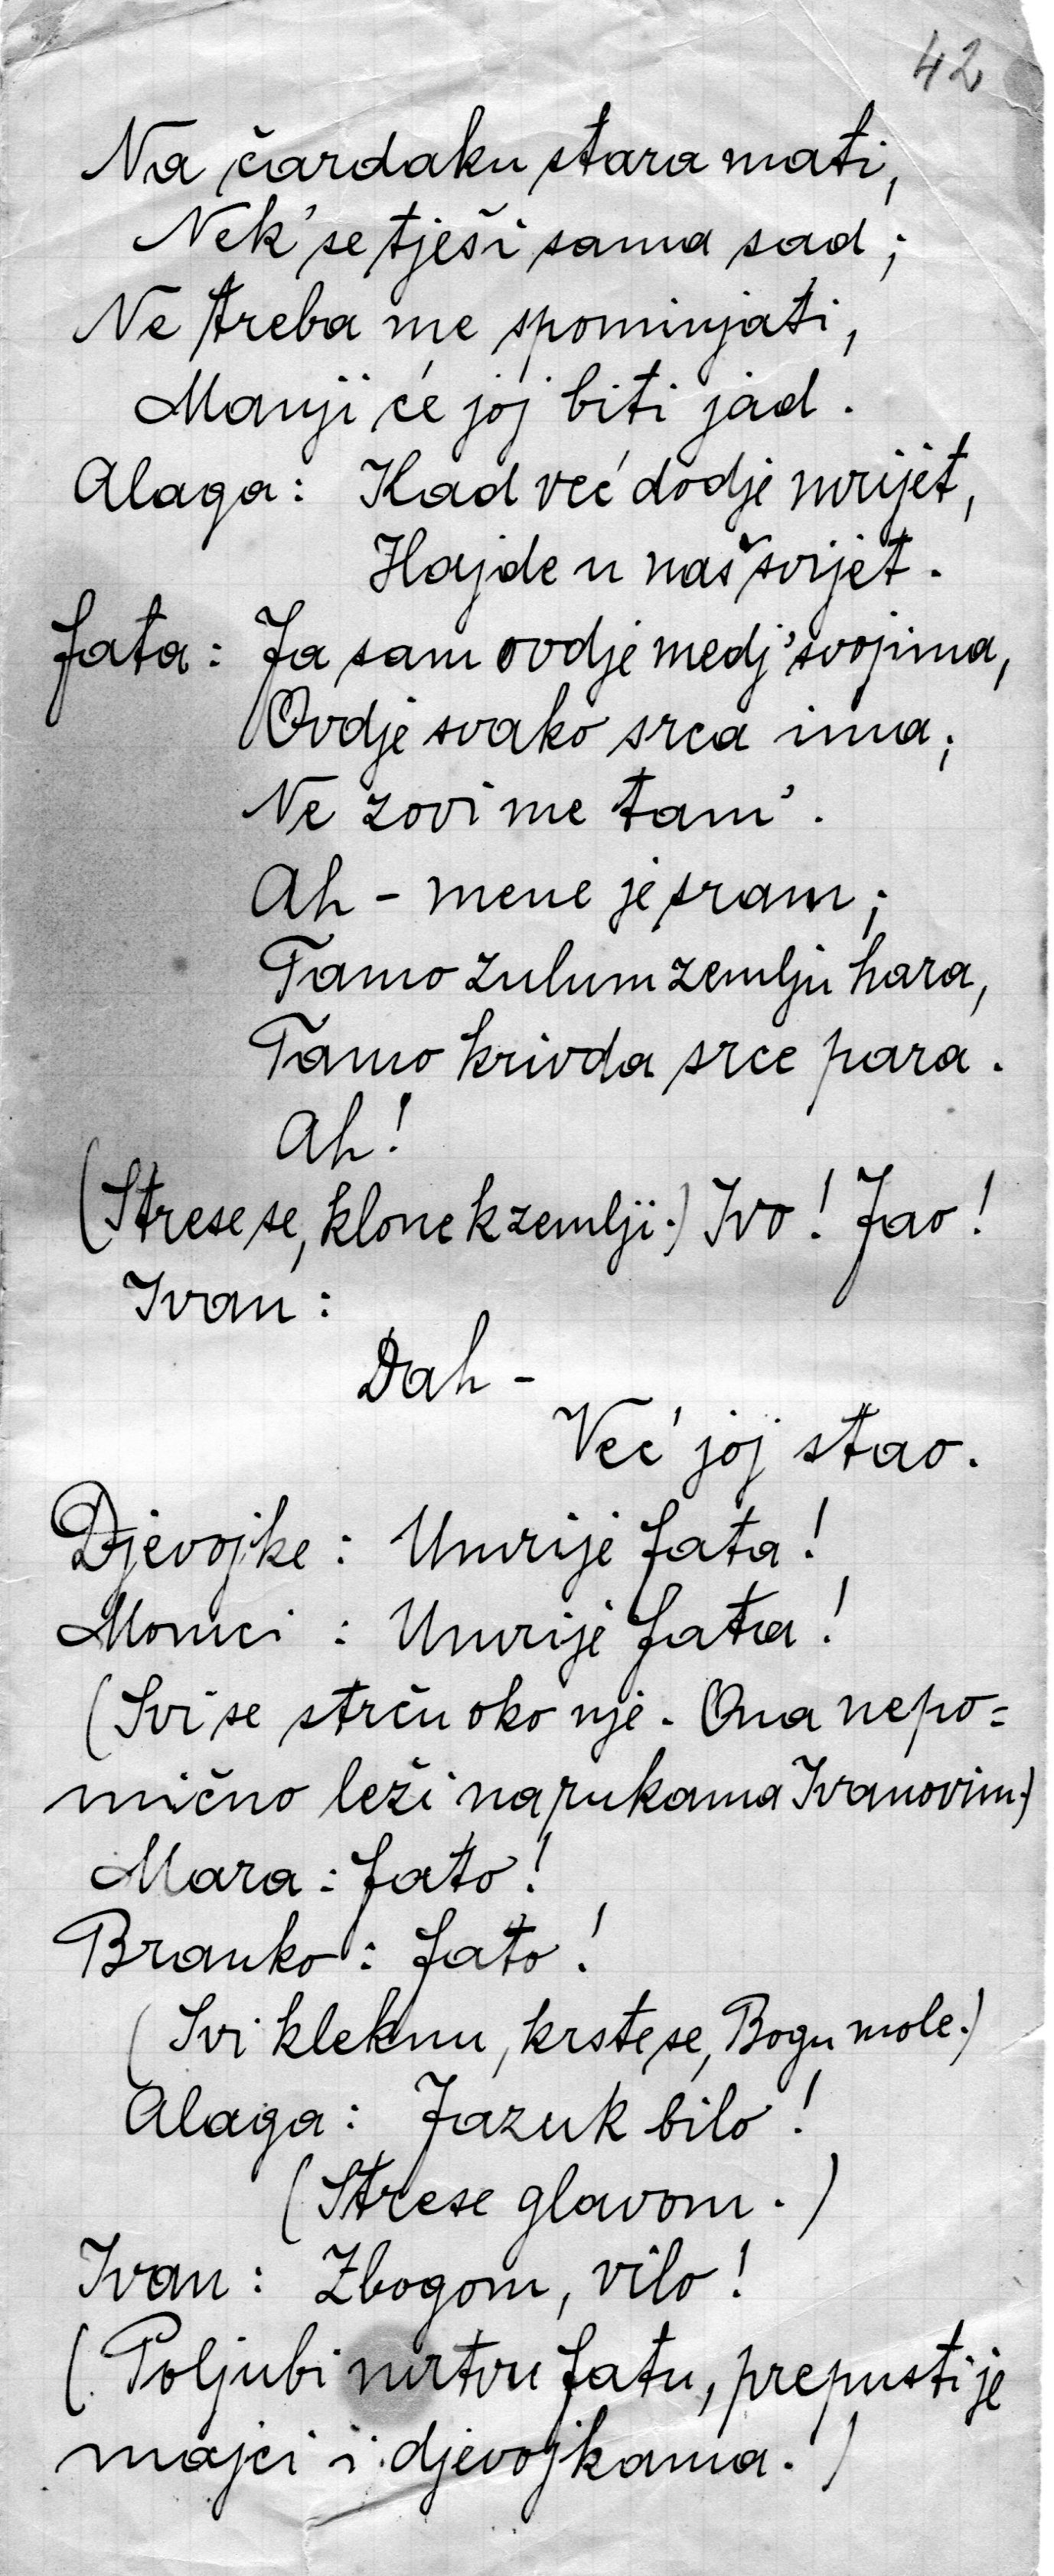 42
Na čardaku stara mati,
Nek' se tješi sama sad;
Ne treba me spominjati,
Manji će joj biti jad.
Alaga: Kad već dodje mrijet,
Hajde u naš svijet.
Fata: Ja sam ovdje medj' svojima,
Ovdje svako srca ima;
Ne zovi me tam'.
Ah - mene je sram;
Tamo zulum zemlju hara,
Tamo krivda srce para.
Ah!
(Strese se, klone k zemlji.) Ivo! Jao!
Ivan:
Dah -
Već joj stao.
Djevojke: Umrije Fata!
Momci: Umrije Fata!
(Svi se strču oko nje. Ona nepo=
mično leži na rukama Ivanovim.)
Mara: Fato!
Branko: Fato!
(Svi kleknu, krste se, Bogu mole.)
Alaga: Jazuk bilo!
(Strese glavom.)
Ivan: Zbogom, vilo!
(Poljubi mrtvu Fatu, prepusti je
majci i djevojkama.)